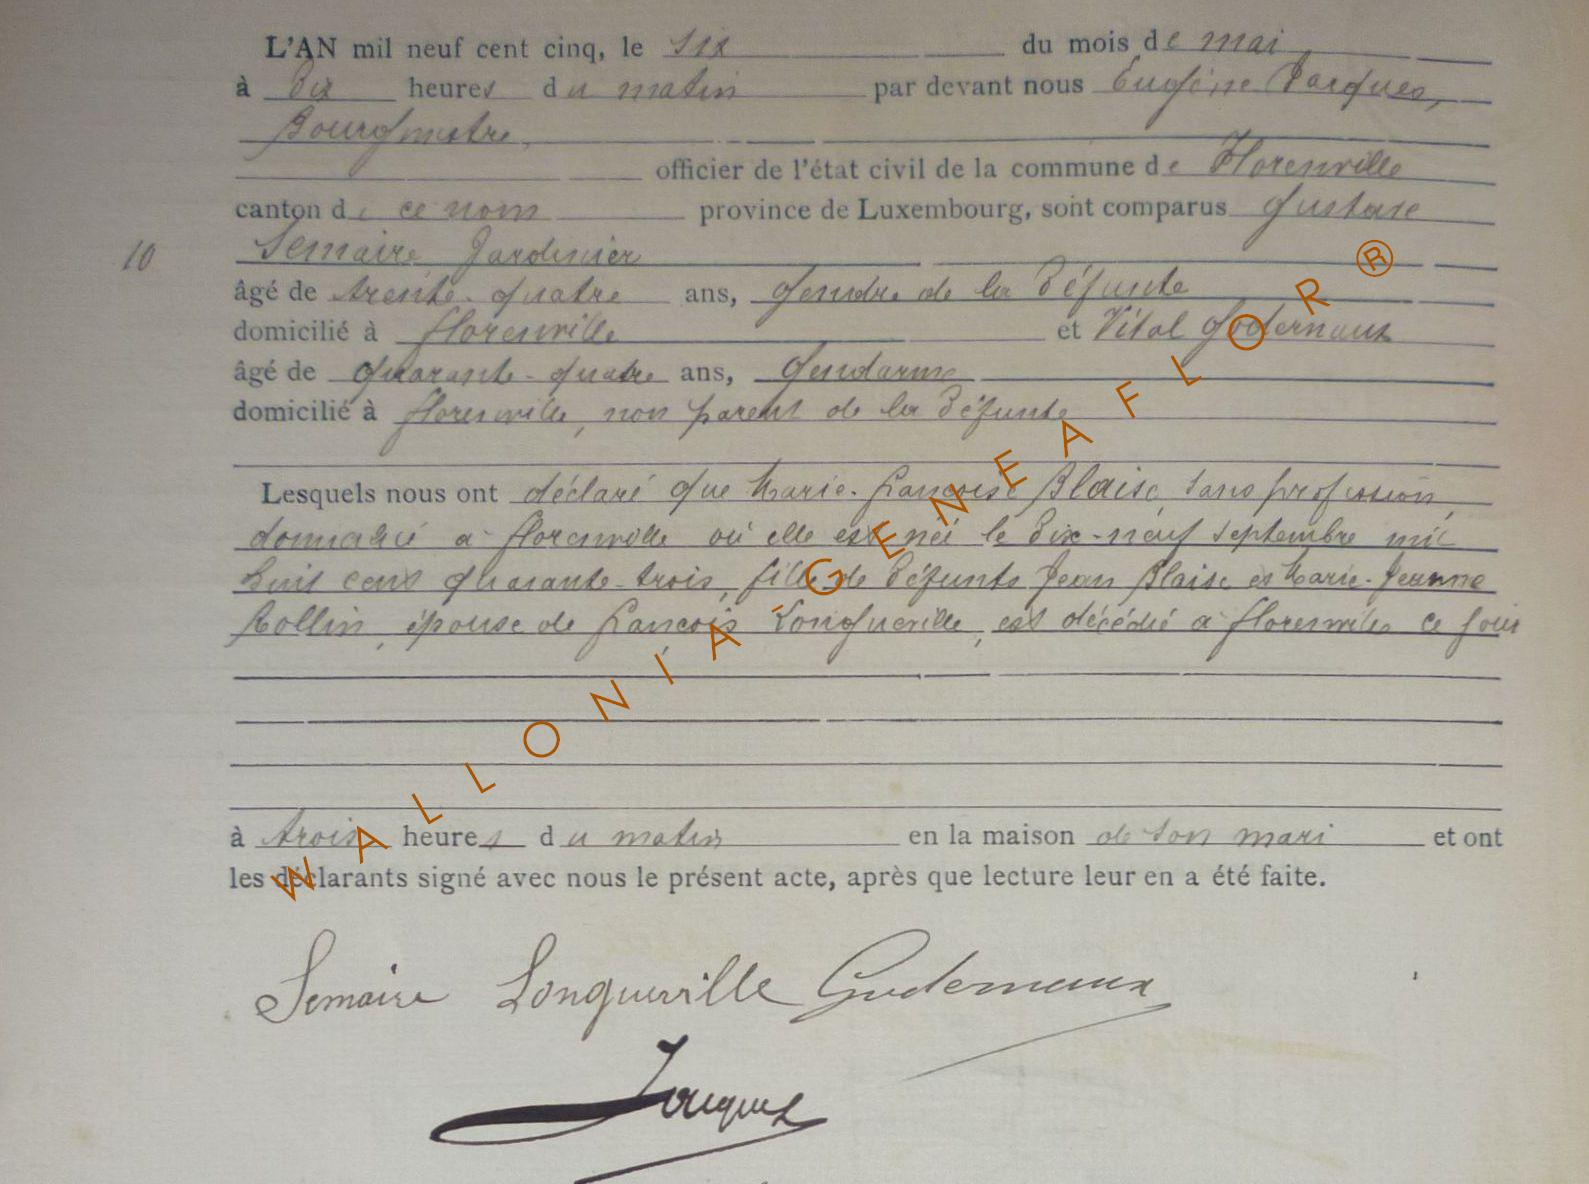 L'AN mil neuf cent cinq, le six du mois de mai
à dix heures du matin par devant nous Eugène Jacques,
Bourgmestre,
officier de l'état civil de la commune de Florenville
canton de ce nom province de Luxembourg, sont comparus Gustave
10 Semaire Jardinier
âgé de trente-quatre ans, gendre de la défunte
domicilié à florenville et Vital Godernaux
âgé de quarante-quatre ans, Gendarme
domicilié à florenville, non parent de la défunte
Lesquels nous ont déclaré que Marie-françoise Blaise, sans profession,
domicilié à florenville où elle est née le dix-neuf septembre mil
huit cent quarante-trois, fille de défunts Jean Blaise et Marie-Jeanne
Rollin, épouse de françois Longueville, est décédé à florenville ce jour
à trois heures du matin en la maison de son mari et ont
les déclarants signé avec nous le présent acte, après que lecture leur en a été faite.
Semaire Longueville Godernaux
Jacques
WALLONIA-GENEAFLOR®